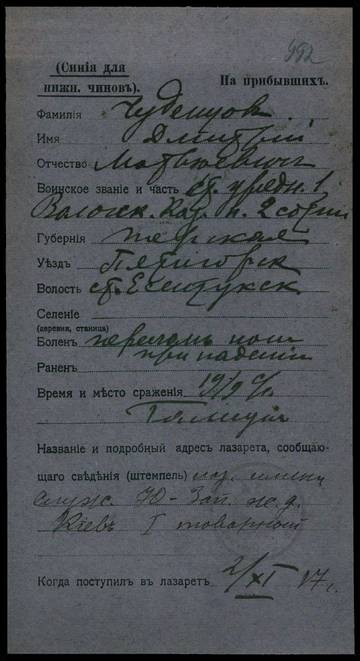 992
(Синія для
нижн. чиновъ).
На прибывшихъ.
Фамилія Чуденцов
Имя Дмитрій
Отчество Матвѣевичъ
Воинское званіе и часть ст. урядн. 1
Волжск. Каз. п. 2 сотни
Губернія Терская
Уѣздъ Пятигорск
Волость ст. Есентукск
Селеніе
(деревня, станица)
Боленъ
при паденіи
Раненъ
Время и мѣсто сраженія 19 с/г
Галиція
Названіе и подробный адресъ лазарета, сообщаю-
щаго свѣдѣнія (штемпель) лаз.
служ. Ю-Зап. ж. д.
Кіевъ I товарной
Когда поступилъ въ лазаретъ 2/XI 17 г.